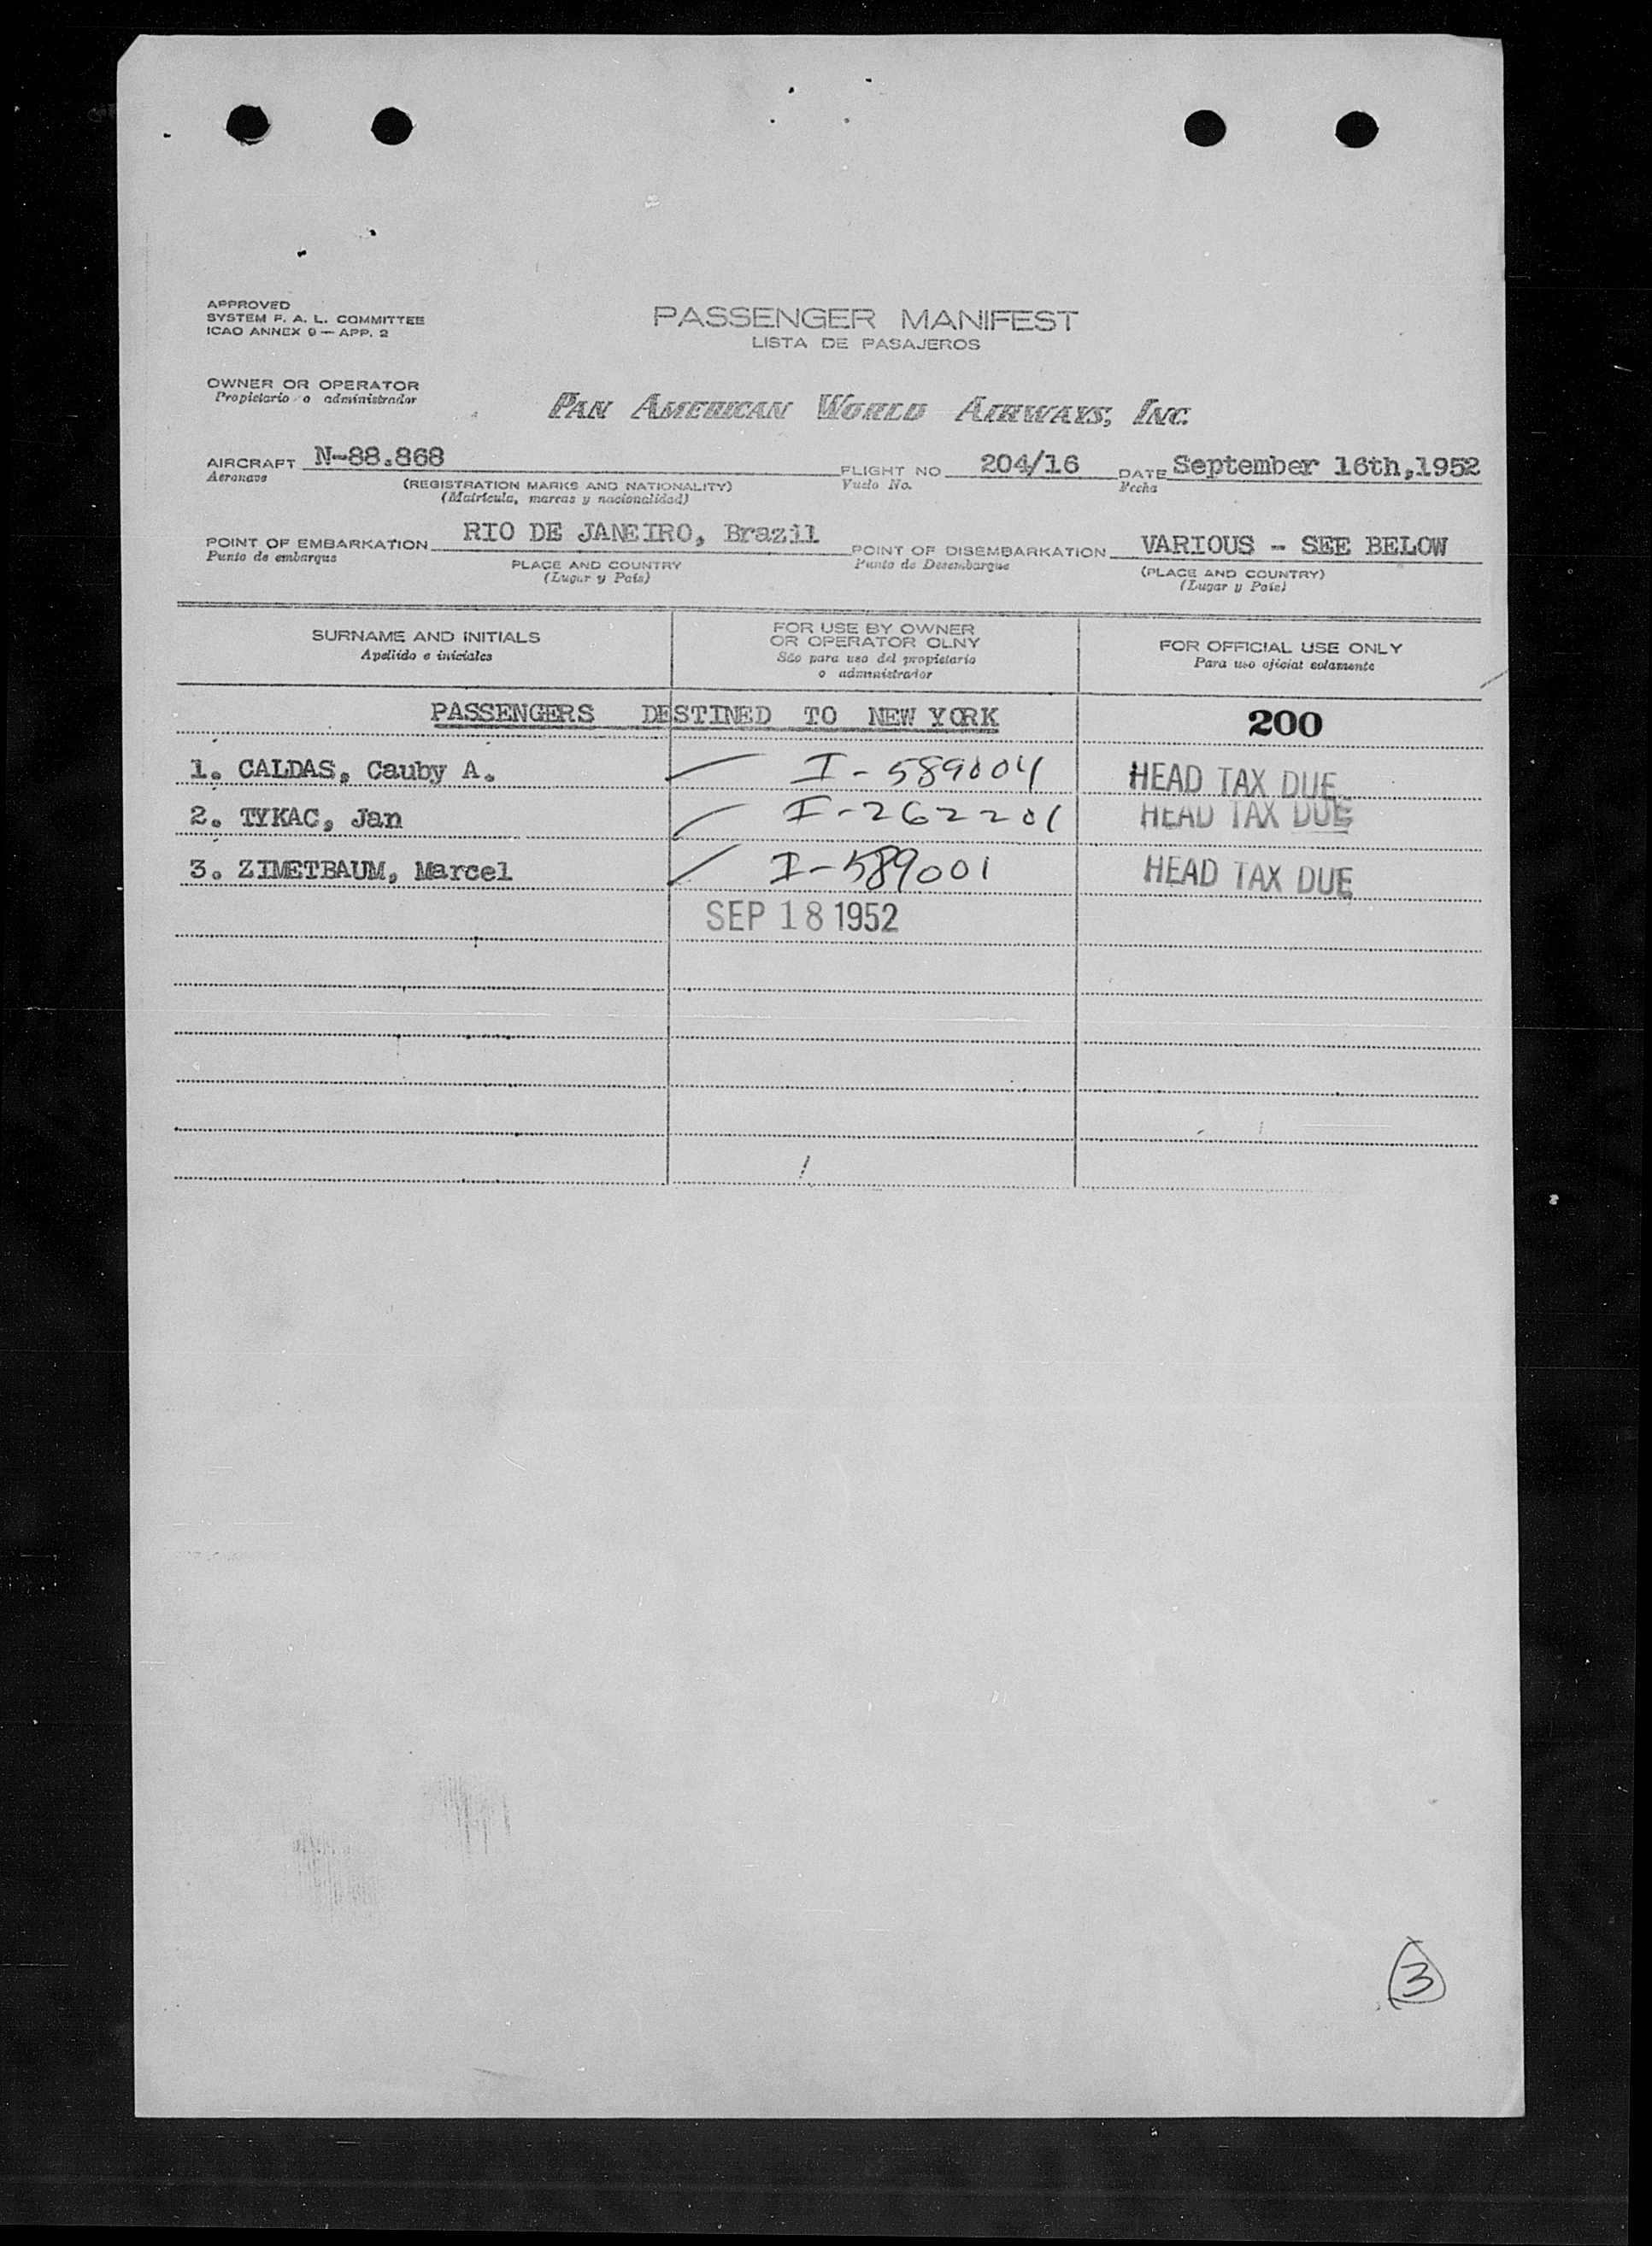 APPROVED
SYSTEM F. A. L. COMMITTEE
ICAO ANNEX 9 — APP. 2
PASSENGER MANIFEST
LISTA DE PASAJEROS
OWNER OR OPERATOR
Propietario o administrador
PAN AMERICAN WORLD AIRWAYS, INC.
AIRCRAFT N-88.868 FLIGHT NO 204/16 DATE September 16th,1952
Aeronave (REGISTRATION MARKS AND NATIONALITY) Vuelo No. Fecha
(Matrícula, marcas y nacionalidad)
POINT OF EMBARKATION RIO DE JANEIRO, Brazil POINT OF DISEMBARKATION VARIOUS - SEE BELOW
Punto de embarque PLACE AND COUNTRY Punto de Desembarque (PLACE AND COUNTRY)
(Lugar y País) (Lugar y País)
SURNAME AND INITIALS
Apellido e iniciales
FOR USE BY OWNER
OR OPERATOR OLNY
Sólo para uso del propietario
o administrador
FOR OFFICIAL USE ONLY
Para uso oficial solamente
PASSENGERS DESTINED TO NEW YORK 200
1. CALDAS, Cauby A. I-589004 HEAD TAX DUE
2. TYKAC, Jan I-262201 HEAD TAX DUE
3. ZIMETBAUM, Marcel I-589001 HEAD TAX DUE
SEP 18 1952
3